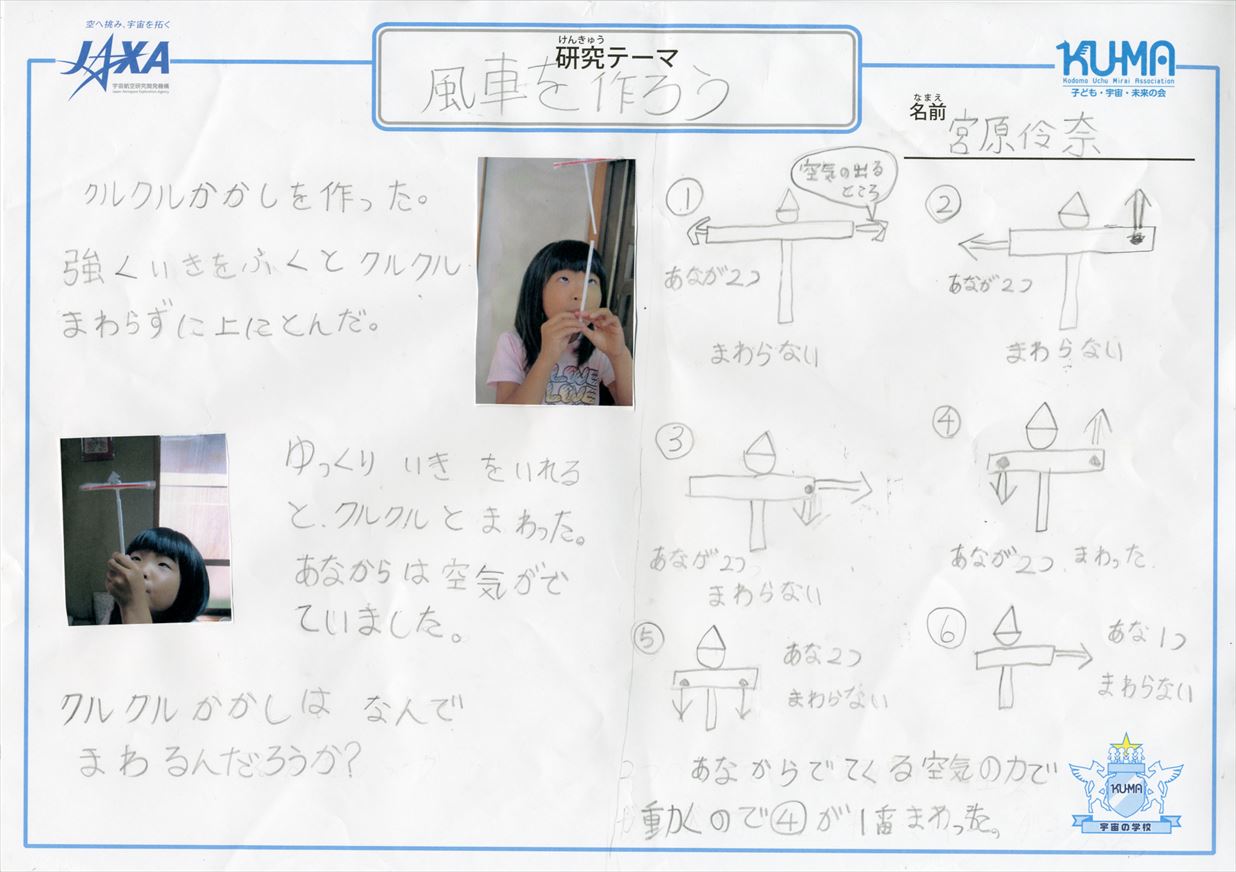 空へ挑み、宇宙を拓く
JAXA
宇宙航空研究開発機構
Japan Aerospace Exploration Agency
けんきゅう
研究テーマ
風車を作ろう
KU-MA
Kodomo Uchu Mirai Association
子ども・宇宙・未来の会
なまえ
名前
宮原伶奈
クルクルかかしを作った。
強くいきをふくとクルクル
まわらずに上にとんだ。
LOVE
LOVE
ゆっくり いき をいれる
と、クルクルと まわった。
あなからは空気がで
ていました。
クルクルかかしは なんで
まわるんだろうか?
①
空気の出る
ところ
あなが2つ
まわらない
②
あなが2つ
まわらない
③
あなが2つ
まわらない
④
あなが2つ まわった
⑤
あな2つ
まわらない
⑥
あな1つ
まわらない
あなからでてくる空気の力で
動くので④が1番まわった。
KU-MA
宇宙の学校